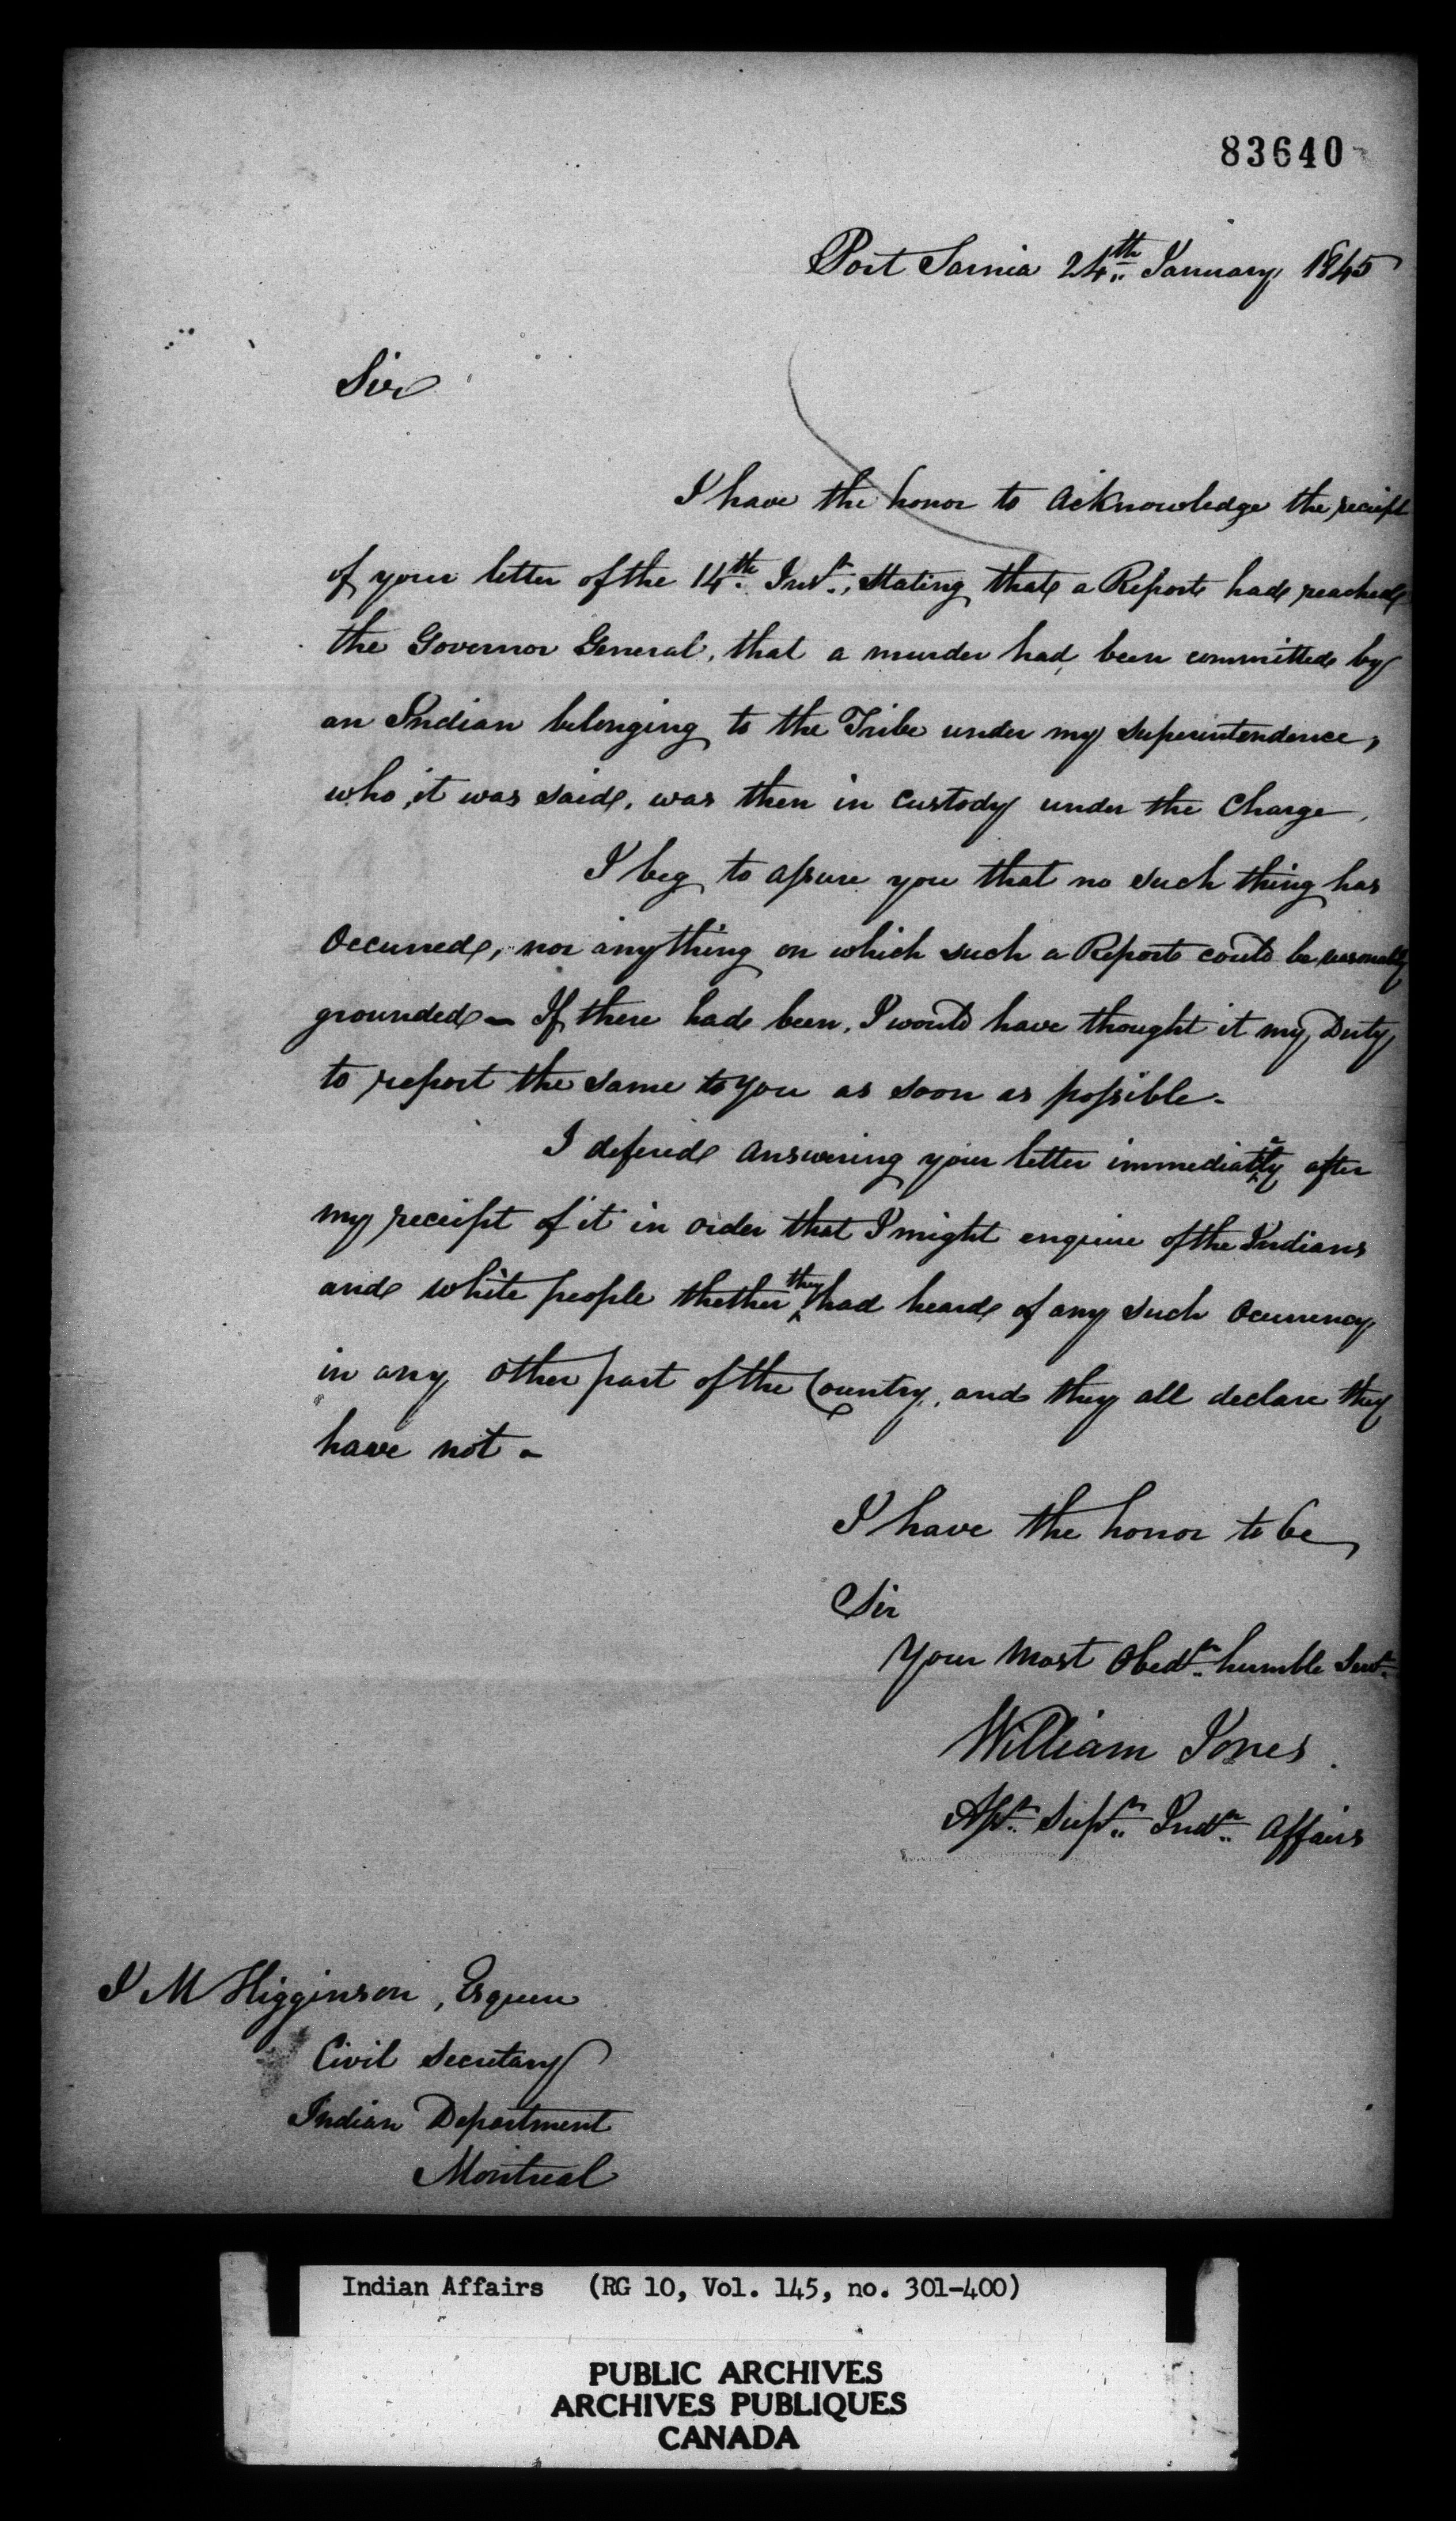 83640
Port Sarnia 24th January 1845
Sir
I have the honor to acknowledge the receipt
of your letter of the 14th Inst., stating that a Report had reached
the Governor General, that a murder had been committed by
an Indian belonging to the Tribe under my superintendence,
who, it was said, was then in custody under the Charge,
I beg to assure you that no such thing has
Occurred, nor anything on which such a Report could be reasonably
grounded - If there had been, I would have thought it my Duty
to report the same to you as soon as possible -
I defered answering your letter immediately after
my receipt of it in order that I might enquire of the Indians
and white people thether they had heard of any such Ocurrency
in any other part of the Country, and they all declare they
have not -
I have the honor to be
Sir
Your most Obedt. humble Servt.
William Jones.
Asst. Supt. Indn. Affairs
J M Higginson, Esquire
Civil Secretary
Indian Department
Montreal
Indian Affairs (RG 10, Vol. 145, no. 301-400)
PUBLIC ARCHIVES
ARCHIVES PUBLIQUES
CANADA